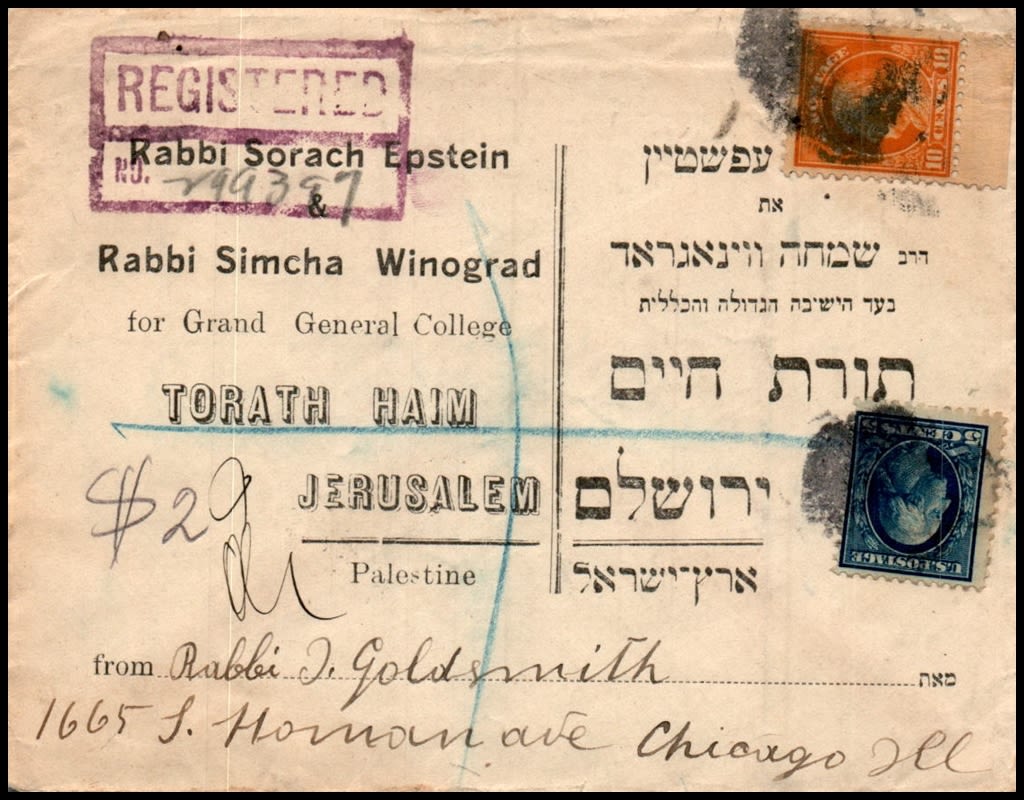 REGISTERED
NO. 299397
Rabbi Sorach Epstein
&
Rabbi Simcha Winograd
for Grand General College
TORATH HAIM
JERUSALEM
Palestine
$2
עפשטיין
את
דרב שמחה ווינאגראד
בעד הישיבה הגדולה והכללית
תורת חיים
ירושלם
ארץ־ישראל
from Rabbi J. Goldsmith מאת
1665 S. Homan ave Chicago Ill
10 CENTS 10
5 CENTS 5
U.S. POSTAGE